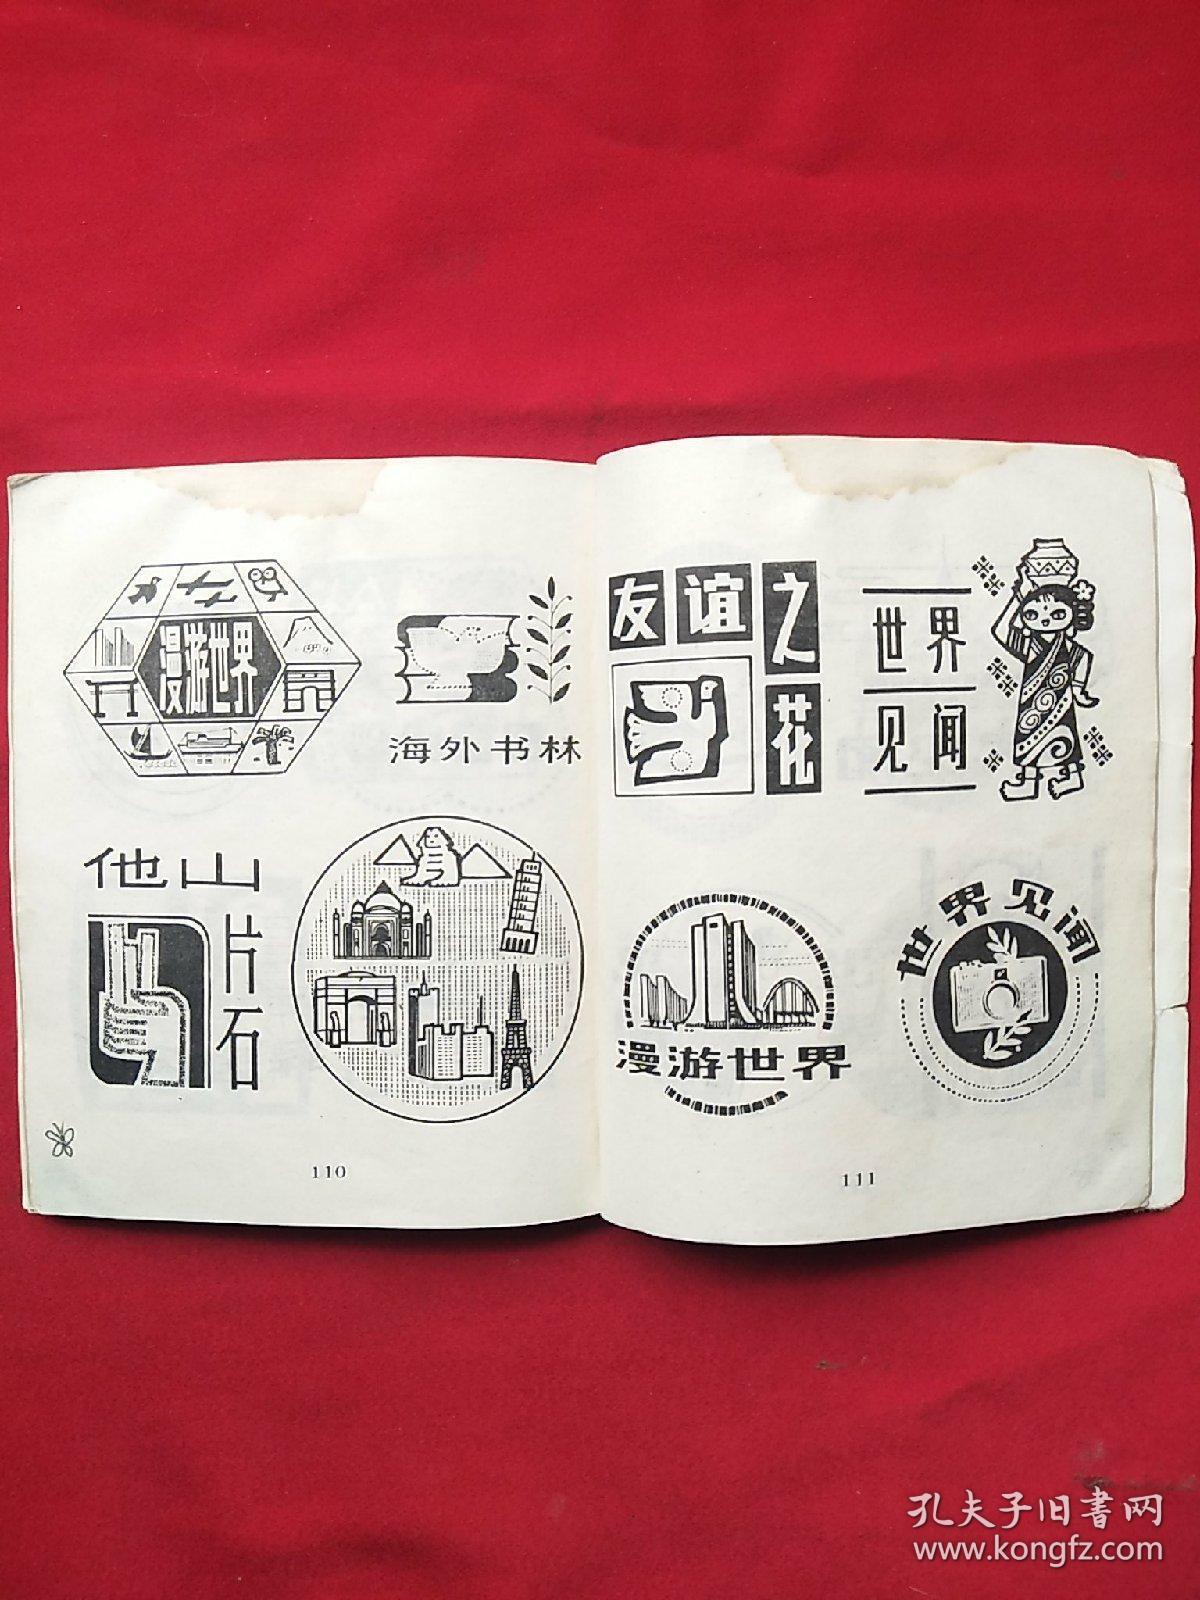 漫游世界
海外书林
他山
片
石
110
友谊之
花
世界
见闻
漫游世界
世界见闻
111
孔夫子旧书网
www.kongfz.com